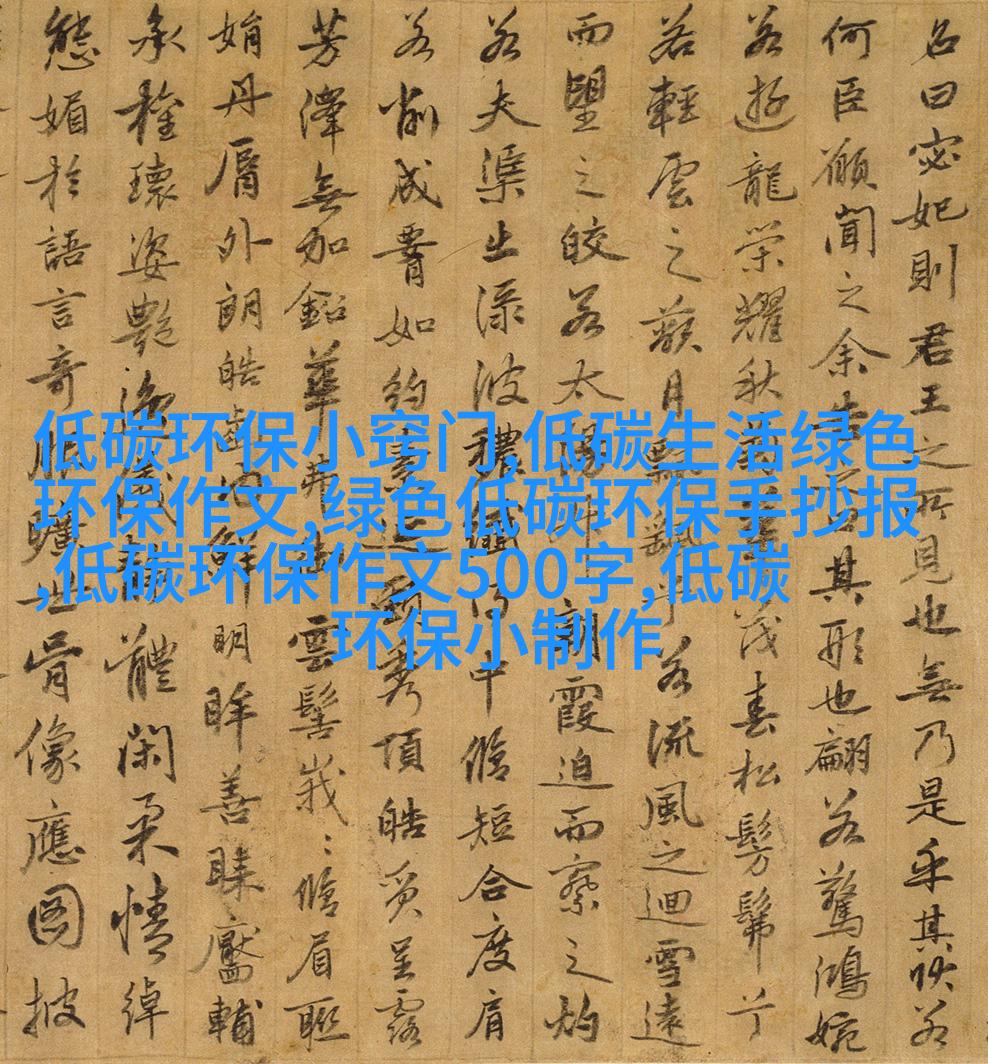 名曰宓妃則君王之所見也無乃是乎其狀若
何臣願聞之余告之曰其形也翩若驚鴻婉
若遊龍榮耀秋菊華茂春松髣髴兮
若輕雲之蔽月飄颻乎若流風之迴雪遠
而望之皎若太陽升朝霞迫而察之灼
若夫渠出淥波穠纖得中脩短合度肩
若削成腰如約素延頸秀項皓質呈露
芳澤無加鉛華弗御雲髻峩〻脩眉聯
娟丹脣外朗皓齒內鮮明眸善睞靨輔
承權瓌姿艷逸儀靜體閑柔情綽
態媚於語言奇服曠世骨像應圖披
低碳环保小窍门,低碳生活绿色
环保作文,绿色低碳环保手抄报
,低碳环保作文500字,低碳
环保小制作